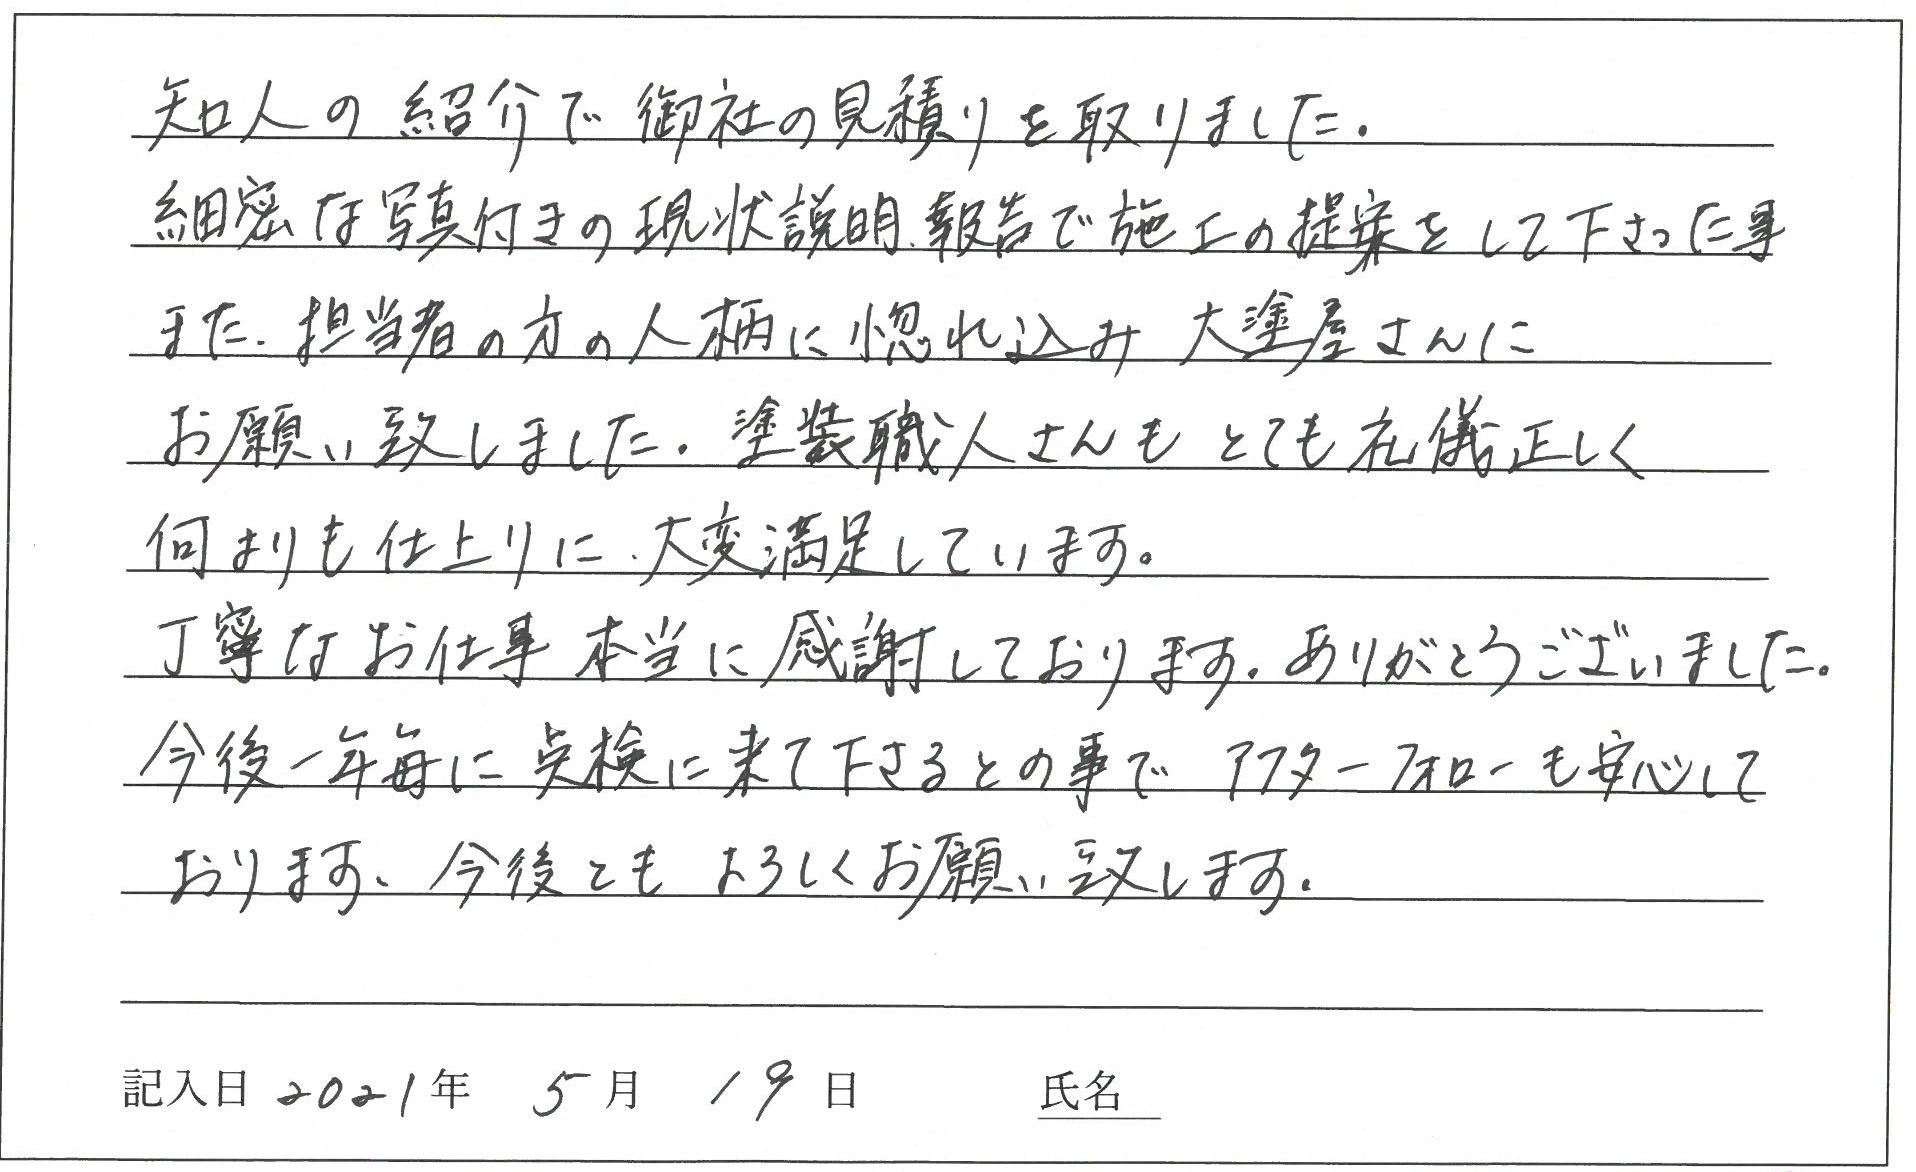 知人の紹介で御社の見積りを取りました.
細密な写真付きの現状説明、報告で施工の提案をして下さった事
また、担当者の方の人柄に惚れ込み 大塗屋さんに
お願い致しました。塗装職人さんも とても礼儀正しく
何よりも仕上りに、大変満足しています。
丁寧なお仕事 本当に感謝しております。ありがとうございました。
今後一年毎に点検に来て下さるとの事で アフターフォローも安心して
おります、今後とも よろしくお願い致します。
記入日 2021年 5月 19日 氏名